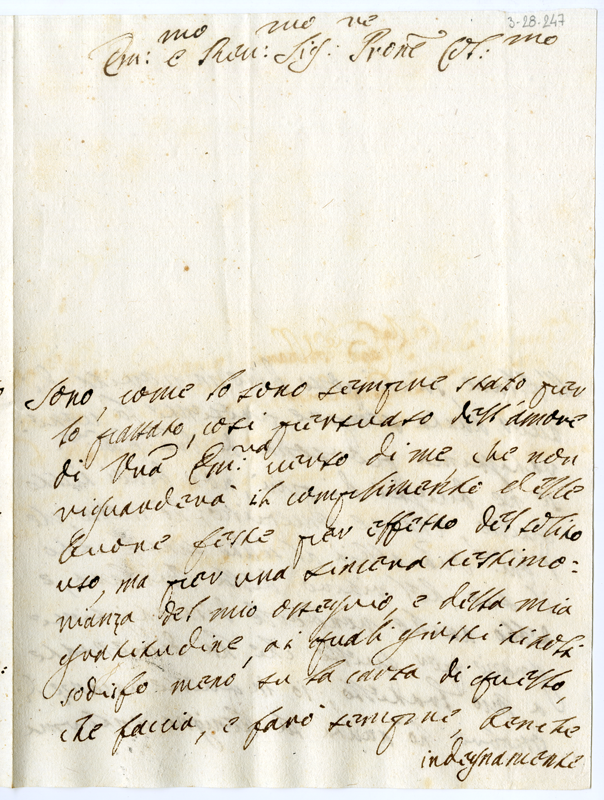 3-28-247
Em:mo e Reu:mo Sig:re Prone Col:mo
Sono, come lo sono sempre stato per
lo passato, così persuaso dell'amore
di Vra Em:za verso di me, che non
riguarderà il complimento delle
buone feste per effetto del solito
uso, ma per una sincera testimo=
nianza del mio ossequio, e della mia
gratitudine, ai quali giusti titoli
sodisfo meno su la carta di questo,
che faccia, e farò sempre, benche
indegnamente